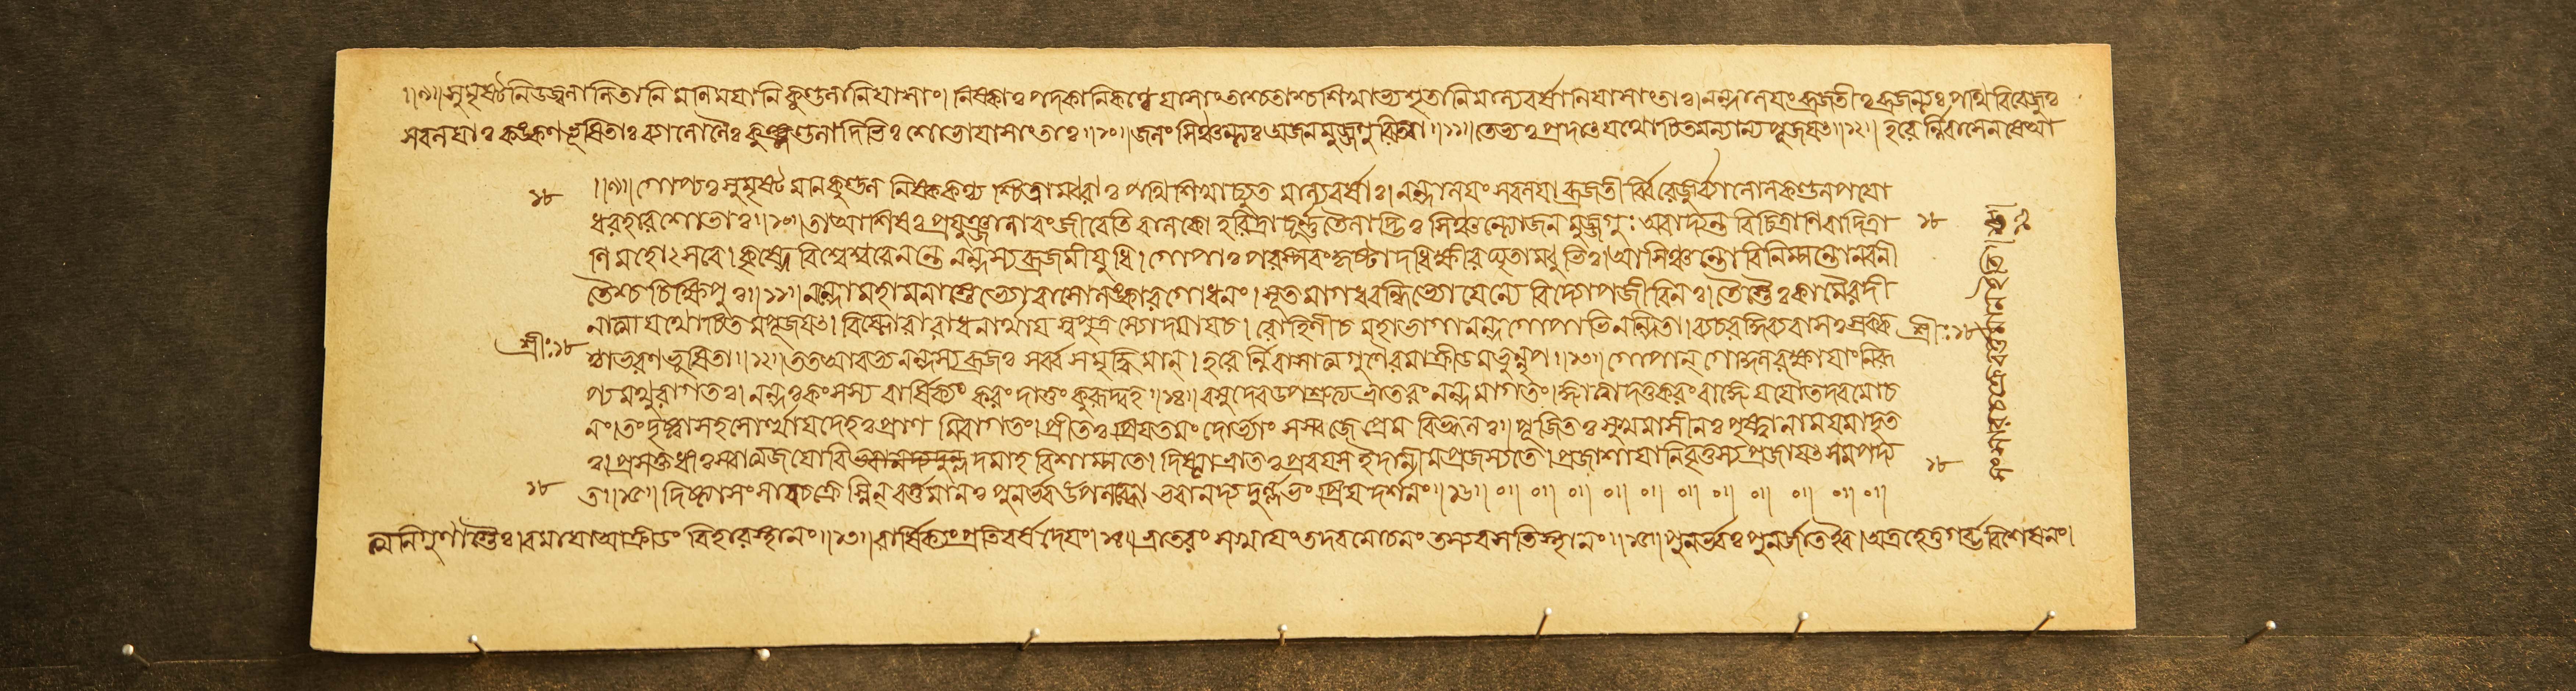 ।।৯।। সুমৃষ্টানি উজ্জ্বলানি তানি মণিময়ানি কুণ্ডলানি যাসাং। নিষ্কাঃ পদকানি কণ্ঠে যাসাং তাশ্চ তাশ্চ শিখাভ্যশ্চ্যুতানি মাল্যবর্ষানি যাসাং তাঃ। নন্দালয়ং ব্রজতীঃ ব্রজন্ত্যঃ পথি বিরেজুঃ
সবলয়াঃ কঙ্কণভূষিতাঃ ব্যালোলৈঃ কুণ্ডলাদিভিঃ শোভা যাসাং তাঃ।।১০।। জনং সিঞ্চন্ত্যঃ অজনমুজ্জগুরিত্যা।।১১।। তেভ্যঃ প্রাদাৎ যথোচিতমন্যান্যপূজয়ৎ।।১২।। হরের্নিবাসেন হেত্বা
১৮ ।।৯।। গোপ্যঃ সুমৃষ্টমণিকুণ্ডল নিষ্ককণ্ঠ্য শ্চিত্রাম্বরাঃ পথি শিখাচ্যুত মাল্যবর্ষাঃ। নন্দালয়ং সবলয়া ব্রজতী র্ব্বিরেজুর্ব্যালোলকুণ্ডলপয়ো
ধরহারশোভাঃ।।১০।। তা আশিষঃ প্রযুঞ্জানা চিরং জীবেতি বালকে। হরিদ্রাচূর্ণতৈলাদ্ভিঃ সিঞ্চন্ত্যোজন মুজ্জগুঃ অবাদ্যন্ত বিচিত্রাণি বাদিত্রা ১৮
ণি মহোৎসবে। কৃষ্ণে বিশ্বেশ্বরেনন্তে নন্দস্য ব্রজমীযুষি। গোপাঃ পরস্পরং হৃষ্টা দধিক্ষীরঘৃতাম্বুভিঃ। আসিঞ্চন্তো বিলিম্পন্তো নবনী
তৈশ্চ চিক্ষিপুঃ।।১১।। নন্দো মহামনাস্তেভ্যো বাসোলঙ্কারগোধনং। সূতমাগধবন্দিভ্যো যেন্যে বিদ্যোপজীবিনঃ। তৈস্তৈঃ কামৈরদী
নাত্মা যথোচিতমপূজয়ৎ। বিষ্ণোরারাধনার্থায় স্বপুত্রস্যোদয়ায় চ। রোহিণী চ মহাভাগা নন্দগোপাভিনন্দিতা। ব্যচরদ্দিব্যবাসঃস্রক্ক শ্রীঃ১৮
শ্রীঃ১৮ ণ্ঠাভরণভূষিতা।।১২।। তত আরভ্য নন্দস্য ব্রজঃ সর্ব্বসমৃদ্ধিমান্। হরের্নিবাসাত্মগুণৈরমাক্রীডমভূন্নৃপ।।১৩।। গোপান্ গোকুলরক্ষায়াং নিরূ
প্য মথুরাং গতঃ। নন্দঃ কংসস্য বার্ষিক্যং করং দাতুং কুরূদ্বহ।।১৪।। বসুদেব উপশ্রুত্য ভ্রাতরং নন্দমাগতং। জ্ঞাত্বা দত্তকরং রাজ্ঞে যযৌ তদবমোচ
নং। তং দৃষ্ট্বা সহসোত্থায় দেহঃ প্রাণ মিবাগতং। প্রীতঃ প্রিয়তমং দোর্ভ্যাং সস্বজে প্রেম বিহ্বলঃ।। পূজিতঃ সুখমাসীনঃ পৃষ্ট্বানাময়মাদৃত
ঃ। প্রসক্তধীঃ স্বাত্মজয়োরি দমাহ বিশাম্পতে। দিষ্ট্যা ভ্রাতঃ প্রবয়স ইদানীমপ্রজস্য তে। প্রজাশায়া নিবৃত্তস্য প্রজা যৎ সমপদ্য ১৮
১৮ ত।।১৫।। দিষ্ট্যা সংসারচক্রেস্মিন্ বর্ত্তমানঃ পুনর্ভবঃ উপলব্ধো ভবানদ্য দুর্ল্লভং প্রিয়দর্শনং।।১৬।। ০।। ০।। ০।। ০।। ০।। ০।। ০।। ০।। ০।। ০।। ০।।
ত্মনিগুণাস্তৈঃ। রমায়া আক্রীডং বিহারস্থানং।।১৩।। বার্ষিক্যং প্রতিবর্ষদেয়ং।।১৪।। ভ্রাতরং সখায়ং তদবমোচনং তস্য বসতিস্থানং।।১৫।। পুনর্ভবঃ পুনর্জাত ইব। অত্র হেতুগর্ব্ভবিশেষণং।